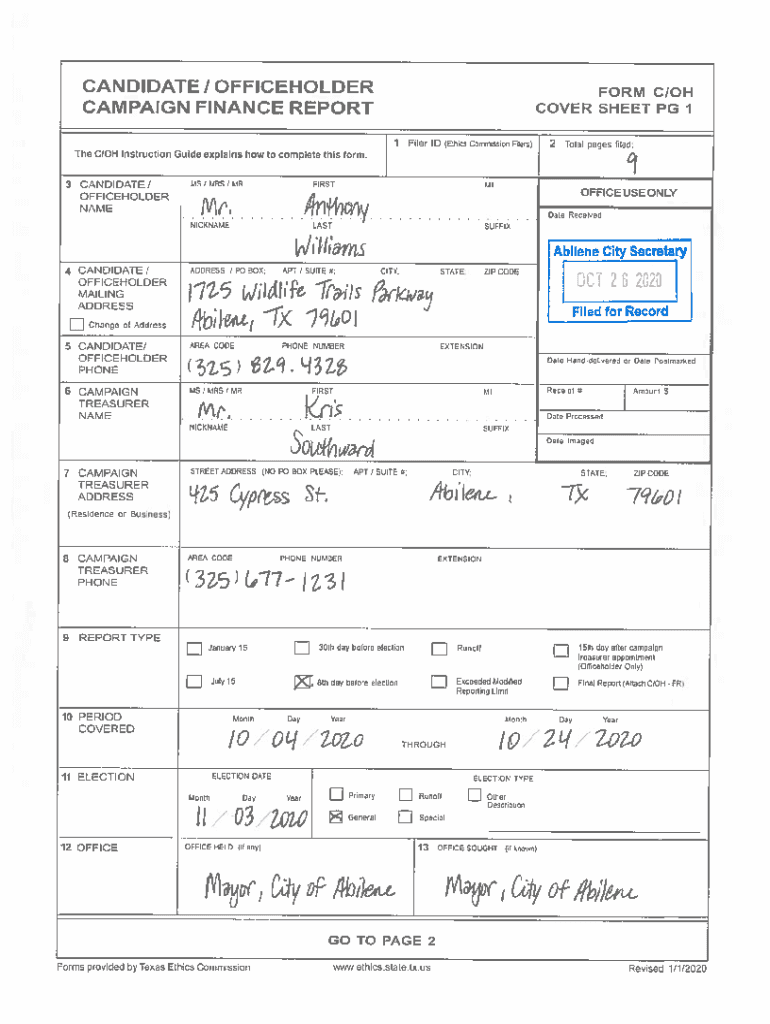 CANDIDATE / OFFICEHOLDER
CAMPAIGN FINANCE REPORT
FORM C/OH
COVER SHEET PG 1
The C/OH Instruction Guide explains how to complete this form.
1 Filer ID (Ethics Commission Filers)
2 Total pages filed:
9
3 CANDIDATE /
OFFICEHOLDER
NAME
MS / MRS / MR FIRST MI
Mr. Anthony
NICKNAME LAST SUFFIX
Williams
OFFICE USE ONLY
Date Received
Abilene City Secretary
OCT 26 2020
Filed for Record
4 CANDIDATE /
OFFICEHOLDER
MAILING
ADDRESS
Change of Address
ADDRESS / PO BOX; APT / SUITE #; CITY; STATE; ZIP CODE
1725 Wildlife Trails Parkway
Abilene, TX 79601
5 CANDIDATE/
OFFICEHOLDER
PHONE
AREA CODE PHONE NUMBER EXTENSION
(325) 829.4328
Date Hand-delivered or Date Postmarked
6 CAMPAIGN
TREASURER
NAME
MS / MRS / MR FIRST MI
Mr. Kris
NICKNAME LAST SUFFIX
Southward
Receipt # Amount $
Date Processed
Date Imaged
7 CAMPAIGN
TREASURER
ADDRESS
(Residence or Business)
STREET ADDRESS (NO PO BOX PLEASE); APT / SUITE #; CITY; STATE; ZIP CODE
425 Cypress St. Abilene, TX 79601
8 CAMPAIGN
TREASURER
PHONE
AREA CODE PHONE NUMBER EXTENSION
(325) 677-1231
9 REPORT TYPE
January 15 30th day before election Runoff 15th day after campaign
treasurer appointment
(Officeholder Only)
July 15 8th day before election Exceeded Modified
Reporting Limit
Final Report (Attach C/OH - FR)
10 PERIOD
COVERED
Month Day Year Month Day Year
10 / 04 / 2020 THROUGH 10 / 24 / 2020
11 ELECTION
ELECTION DATE
Month Day Year
11 / 03 / 2020
ELECTION TYPE
Primary Runoff Other
Description
General Special
12 OFFICE
OFFICE HELD (if any)
Mayor, City of Abilene
13 OFFICE SOUGHT (if known)
Mayor, City of Abilene
GO TO PAGE 2
Forms provided by Texas Ethics Commission www.ethics.state.tx.us Revised 1/1/2020